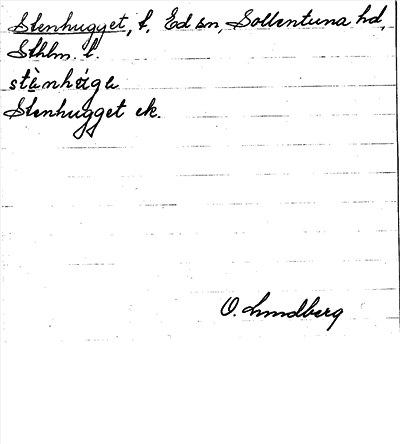 Stenhugget, t, Ed sn, Sollentuna hd,
Sthlm. l.
Stenhugget ek.
O. Lundberg